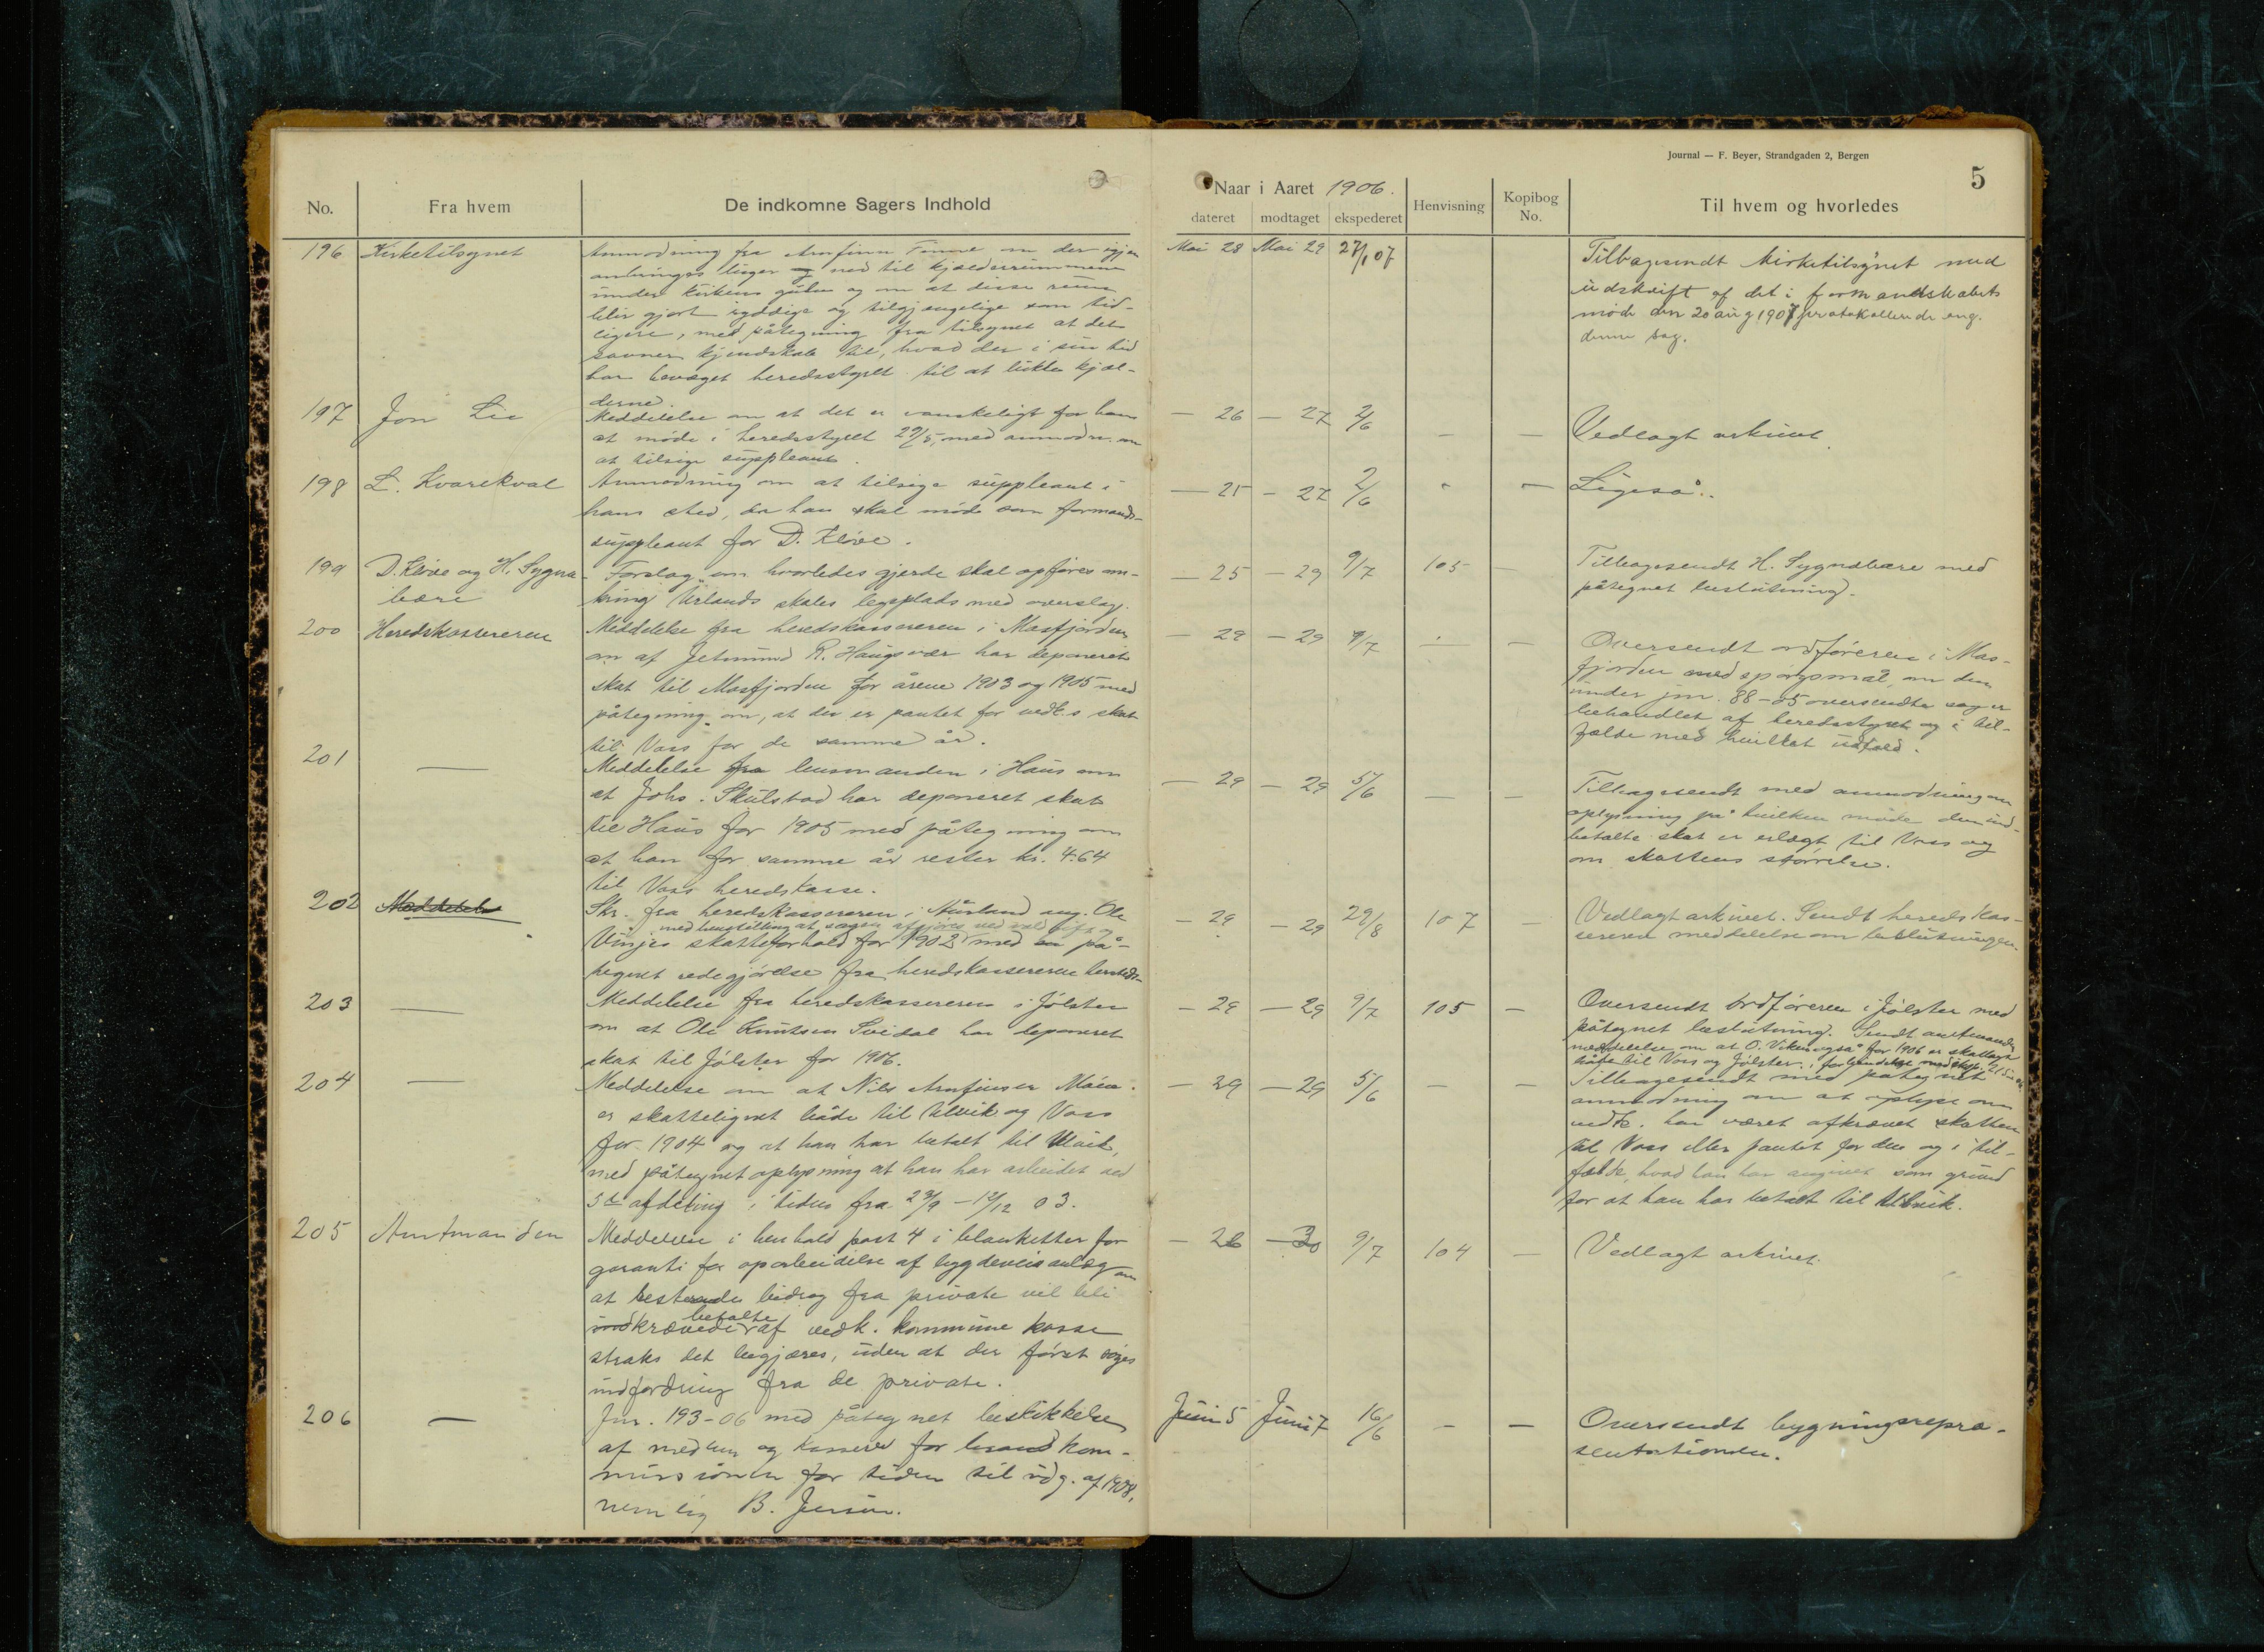 Journal — F. Beyer, Strandgaden 2, Bergen
5
No.
Fra hvem
De indkomne Sagers Indhold
Naar i Aaret 1906.
dateret
modtaget
ekspederet
Henvisning
Kopibog No.
Til hvem og hvorledes
196 Kirketilsynet
Anmodning fra Arnfinn Finne om der igjen
anbringes luger og ned til kjælderrummene
under kirkens gulv og om at disse rum
blir gjort ryddige og tilgjængelige som tid-
ligere, med påtegning fra tilsynet at det
savner kjendskab til, hvad der i sin tid
har bevæget heredsstyret til at lukke kjæl-
derne.
Mai 28 Mai 29 27/1 07
Tilbagesendt kirketilsynet med
udskrift af det i formandskabets
møde den 20 aug 1907 protokollerede ang.
denne sag.
197 Jon Lie
Meddelelse om at det er vanskeligt for ham
at møde i heredsstyret 29/5, med anmodn. om
at tilsige suppleant.
— 26 — 27 2/6 — —
Vedlagt arkivet.
198 L. Kvarekval
Anmodning om at tilsige suppleant i
hans sted, da han skal møde som formands-
suppleant for D. Kløve.
— 25 — 27 2/6 — —
Ligeså.
199 D. Kløve og H. Sygna
bære
Forslag om hvorledes gjerde skal opføres om-
kring Urlands skoles legeplads med overslag.
— 25 — 29 9/7 105 —
Tilbagesendt H. Sygnabære med
påtegnet beslutning.
200 Heredskassereren
Meddelelse fra heredskassereren i Masfjorden
om af Jetmund R. Haugsvær har deponeret
skat til Masfjorden for årene 1903 og 1905 med
påtegning om, at der er pantet for vedk.s skat
til Voss for de samme år.
— 29 — 29 9/7 — —
Oversendt ordføreren i Mas-
fjorden med spørgsmål, om den
under jnr. 88-05 oversendte sag er
behandlet af heredsstyret og i til-
fælde med hvilket udfald.
201 —
Meddelelse fra lensmanden i Haus om
at Johs. Skulstad har deponeret skat
til Haus for 1905 med påtegning om
at han for samme år rester kr. 4.64
til Voss heredskasse.
— 29 — 29 5/6 — —
Tilbagesendt med anmodning om
oplysning på hvilken måde den ind-
betalte skat er erlagt til Voss og
om skattens størrelse.
202 Meddelels
Skr. fra heredskassereren i Aurland ang. Ole
med henstilling at sagen afgjøres ved
Vinjes skatteforhold for 1902 med på-
tegnet redegjørelse fra heredskassereren
— 29 — 29 29/8 107
Vedlagt arkivet. Sendt heredskas-
sereren meddelelse om beslutningen.
203 —
Meddelelse fra heredskassereren i Jølster
om at Ole Knutsen Sveidal har deponeret
skat til Jølster for 1906.
— 29 — 29 9/7 105 —
Oversendt ordføreren i Jølster med
påtegnet beslutning. Sendt amtmanden
meddelelse om at O. også for 1906 er skattlagt
både til Voss og Jølster, i forbindelse med
204 —
Meddelelse om at Nils Arnfinsen Mæen
er skattelignet både til Ulvik og Voss
for 1904 og at han har betalt til Ulvik,
med påtegnet oplysning at han har arbeidet ved
3die afdeling i tiden fra 23/9 - 12/12 03.
— 29 — 29 5/6 — —
Tilbagesendt med påtegnet
anmodning om at oplyse om
vedk. har været afkrævet skatten
til Voss eller pantet for den og i til-
fælde, hvad han har angivet som grund
for at han har betalt til Ulvik.
205 Amtmanden
Meddelelse i henhold post 4 i blanketter for
garanti for oparbeidelse af bygdeveisanlæg om
at bestemte bidrag fra private vil bli
betalte
indkrævede af vedk. kommune kasse
straks det begjæres, uden at der først søges
indfordring fra de private.
— 26 — 30 9/7 104 —
Vedlagt arkivet.
206 —
Jnr. 193-06 med påtegnet beskikkelse
af medlem og kasserer for brandkom-
missionen for tiden til udg. af 1908,
nemlig B. Jensen.
Juni 5 Juni 7 16/6 — —
Oversendt bygningsrepræ-
sentationen.